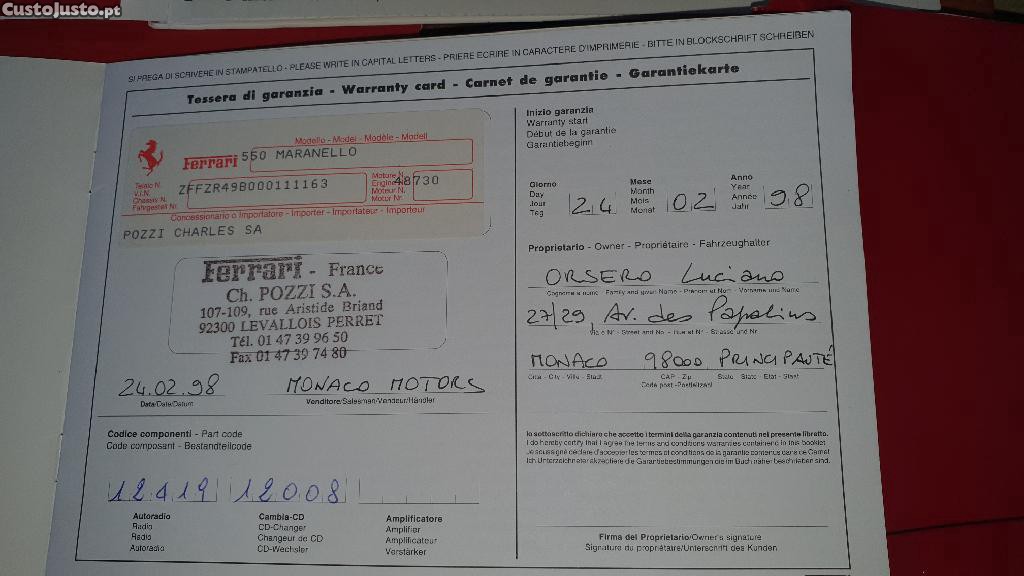 CustoJusto.pt
SI PREGA DI SCRIVERE IN STAMPATELLO - PLEASE WRITE IN CAPITAL LETTERS - PRIERE ECRIRE IN CARACTERE D'IMPRIMERIE - BITTE IN BLOCKSCHRIFT SCHREIBEN
Tessera di garanzia - Warranty card - Carnet de garantie - Garantiekarte
Modello - Model - Modèle - Modell
Ferrari 550 MARANELLO
Telaio N.
V.I.N.
Chassis N.
Fahrgestell Nr.
ZFFZR49B000111163
Motore N.
Engine N.
Moteur N.
Motor Nr.
48730
Concessionario o Importatore - Importer - Importateur - Importeur
POZZI CHARLES SA
Ferrari - France
Ch. POZZI S.A.
107-109, rue Aristide Briand
92300 LEVALLOIS PERRET
Tél. 01 47 39 96 50
Fax 01 47 39 74 80
24.02.98 MONACO MOTORS
Data/Date/Datum Venditore/Salesman/Vendeur/Händler
Codice componenti - Part code
Code composant - Bestandteilcode
12419 12008
Autoradio
Radio
Radio
Autoradio
Cambia-CD
CD-Changer
Changeur de CD
CD-Wechsler
Amplificatore
Amplifier
Amplificateur
Verstärker
Inizio garanzia
Warranty start
Début de la garantie
Garantiebeginn
Giorno
Day
Jour
Teg
24
Mese
Month
Mois
Monat
02
Anno
Year
Année
Jahr
98
Proprietario - Owner - Propriétaire - Fahrzeughalter
ORSERO Luciano
Cognome e nome - Family and given Name - Prénom et Nom - Vorname und Name
27/29, Av. des Papalins
Via e N° - Street and No. - Rue et N° - Strasse und Nr.
MONACO 98000 PRINCIPAUTÉ
Citta - City - Ville - Stadt CAP - Zip State - State - Etat - Staat
Code post - Postleitzahl
Io sottoscritto dichiaro che accetto i termini della garanzia contenuti nel presente libretto.
I do hereby certify that I agree the terms and conditions warranties contained in this booklet
Je soussigné déclare d'accepter les termes et conditions de la garantie contenus dans ce Carnet
Ich Unterzeichneter akzeptiere die Garantiebestimmungen die im Buch näher beschrieben sind.
Firma del Proprietario/Owner's signature
Signature du propriétaire/Unterschrift des Kunden